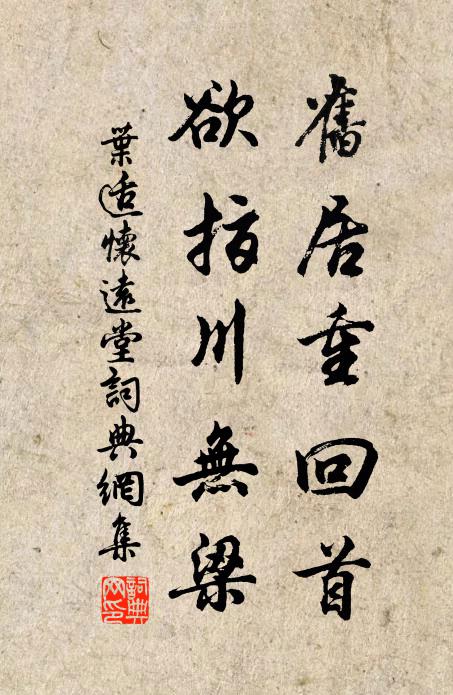 舊居重回首
欲指川無梁
葉適懷遠堂詞典網集
詞典網印